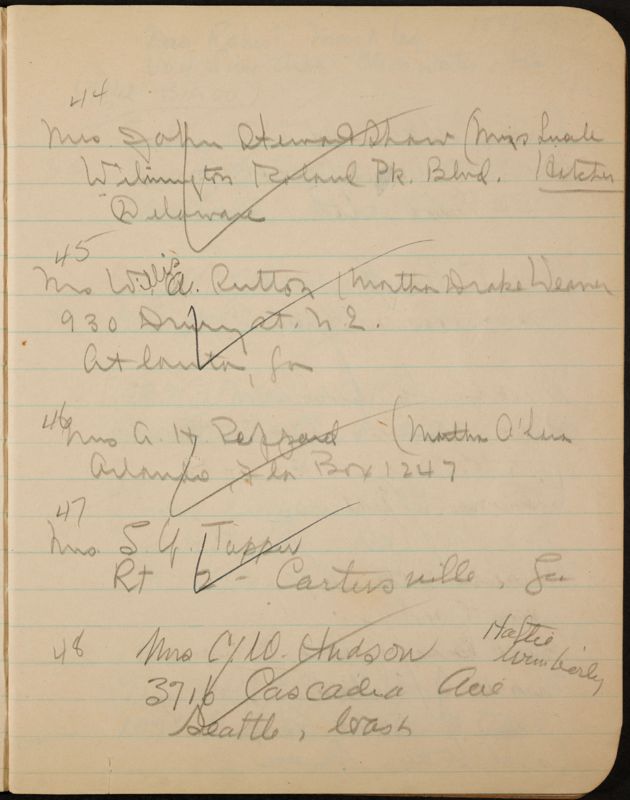 44
Mrs John Steward Shaw (Miss Lucile
Wilmington Roland Pk. Blvd. Hatcher
Delaware
45
Mrs Willis A. Sutton (Martha Drake Weaver
930 Drury St. N.E.
Atlanta, Ga
46
Mrs A. H. Peppard (Martha O'
Orlando, Fla Box 1247
47
Mrs. S. Y. Tupper
Rt 2 - Cartersville, Ga
48 Mrs C. W. Hudson Hattie
3716 Cascadia Ave Wimberly
Seattle, Wash